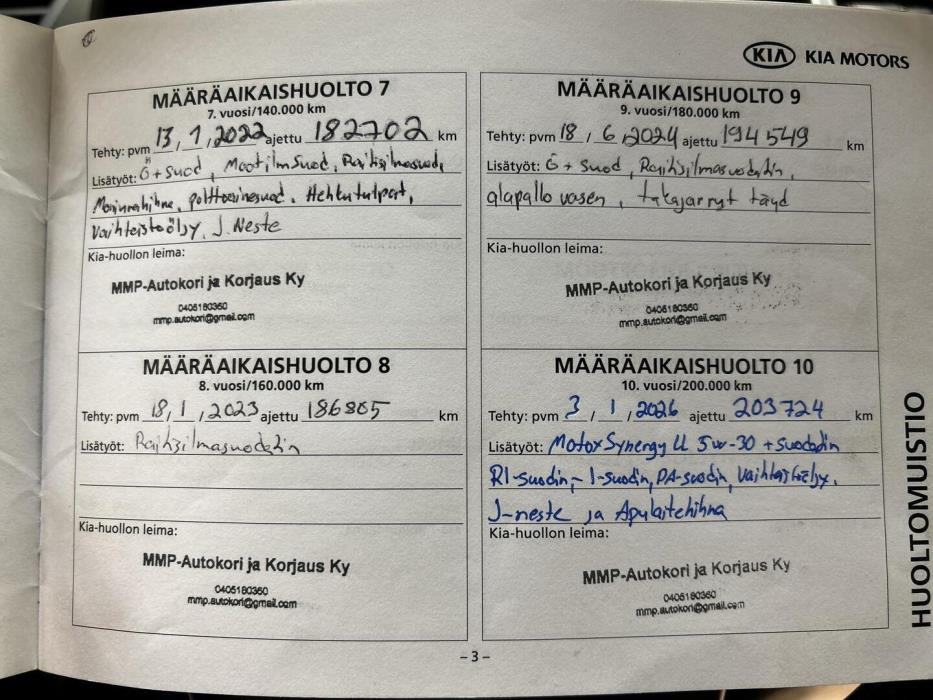 KIA KIA MOTORS
MÄÄRÄAIKAISHUOLTO 7
7. vuosi/140.000 km
Tehty: pvm 13 / 1 / 2022 ajettu 182702 km
Lisätyöt: Ö + suod, Moot ilm suod, Raitisilmasuod,
Moniurahihna, polttoainesuod. Hehkutulpat,
Vaihteistoöljy, J. Neste
Kia-huollon leima:
MMP-Autokori ja Korjaus Ky
0405180360
mmp.autokori@gmail.com
MÄÄRÄAIKAISHUOLTO 8
8. vuosi/160.000 km
Tehty: pvm 18 / 1 / 2023 ajettu 186805 km
Lisätyöt: Raitisilmasuodatin
Kia-huollon leima:
MMP-Autokori ja Korjaus Ky
0405180360
mmp.autokori@gmail.com
MÄÄRÄAIKAISHUOLTO 9
9. vuosi/180.000 km
Tehty: pvm 18 / 6 / 2024 ajettu 194549 km
Lisätyöt: Ö + suod, Raitisilmasuodatin,
alapallo vasen, takajarrut täyd
Kia-huollon leima:
MMP-Autokori ja Korjaus Ky
0405180360
mmp.autokori@gmail.com
MÄÄRÄAIKAISHUOLTO 10
10. vuosi/200.000 km
Tehty: pvm 3 / 1 / 2026 ajettu 203724 km
Lisätyöt: Motox Synergy LL 5w-30 + suodatin
RI-suodin, - I-suodin, PA-suodin, Vaihteistoöljy,
J-neste ja Apulaitehihna
Kia-huollon leima:
MMP-Autokori ja Korjaus Ky
0405180360
mmp.autokori@gmail.com
HUOLTOMUISTIO
– 3 –